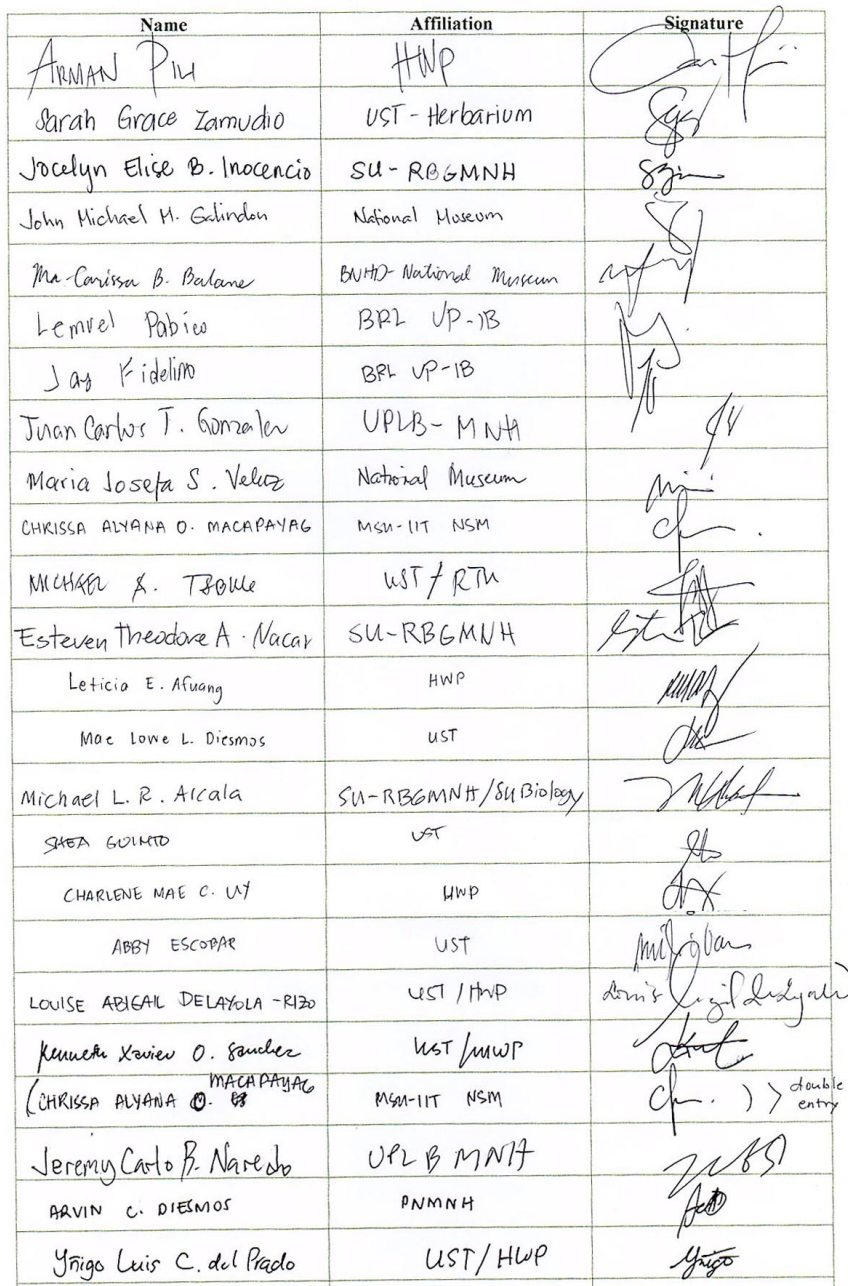 Name Affiliation Signature
ARMAN PILI HWP
Sarah Grace Zamudio UST - Herbarium
Jocelyn Elise B. Inocencio SU - RBGMNH
John Michael M. Galindon National Museum
Ma. Carissa B. Balane BNHD - National Museum
Lemuel Pabico BRL UP-IB
Jay Fidelino BRL UP-IB
Juan Carlos T. Gonzalez UPLB - MNH
Maria Josefa S. Veluz National Museum
CHRISSA ALYANA O. MACAPAYAG MSU-IIT NSM
MICHAEL UST / RTU
Esteven Theodore A. Nacar SU-RBGMNH
Leticia E. Afuang HWP
Mae Lowe L. Diesmos UST
Michael L. R. Alcala SU-RBGMNH/SU Biology
SHEA GUINTO UST
CHARLENE MAE C. UY HWP
ABBY ESCOBAR UST
LOUISE ABIGAIL DELAYOLA-RIZO UST / HWP
Kenneth Xavier O. Sanchez UST /HWP
(CHRISSA ALYANA O. MACAPAYAG MSU-IIT NSM ) > double entry
Jeremy Carlo B. Naredo UPLB MNH
ARVIN C. DIESMOS PNMNH
Yñigo Luis C. del Prado UST/HWP Yñigo